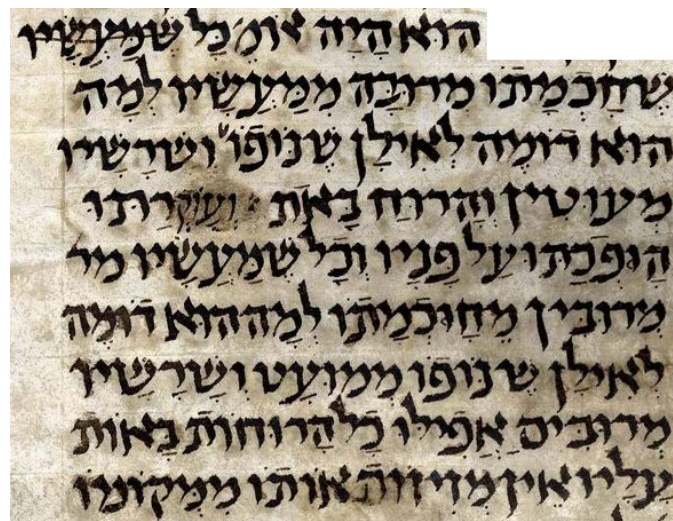 הוּא הָיָה אוֹמֵ׳ כָּל שֶׁמַּעֲשָׂיו
שֶׁחָכְמָתוֹ מְרוּבָּה מִמַּעֲשָׂיו לְמָה
הוּא דוֹמֶה לְאִילָן שֶׁנּוֹפוֹ וְשָׁרָשָׁיו
מְעוּטִין וְהָרוּחַ בָּאָת וְעוֹקַרְתּוֹ
הוֹפַכְתּוֹ עַל פָּנָיו וְכָל שֶׁמַּעֲשָׂיו מר
מְרוּבִּין מֵחוּכְמָתוֹ לְמָה הוּא דוֹמֶה
לְאִילָן שֶׁנּוֹפוֹ מְמוּעָט וְשָׁרָשָׁיו
מְרוּבִּים אֲפִילּוּ כָּל הָרוּחוֹת בָּאוֹת
עָלָיו אֵין מְזִיזוֹת אוֹתוֹ מִמְּקוֹמוֹ